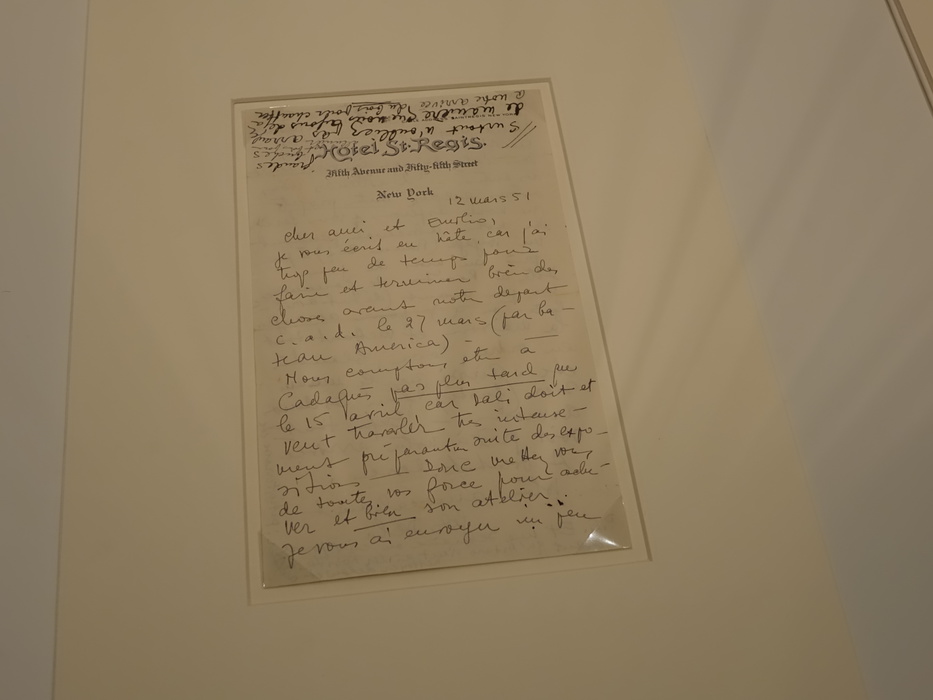 Surtout n'oubliez pas
de manière que nous ayons déjà
à notre arrivée du bois pour le chauffage
Hotel St. Regis.
Fifth Avenue and Fifty-fifth Street
New York
12 mars 51
cher ami et Emilio,
je vous écris en hâte, car j'ai
trop peu de temps pour
faire et terminer bien des
choses avant notre départ
c.a.d. le 27 mars (par ba-
teau America) -
Nous comptons être à
Cadaqués pas plus tard que
le 15 avril car Dali doit et
veut travailler très intense-
ment préparation suite des expo-
sitions - Donc mettez vous
de toute vos force pour ache-
ver et bien son atelier.
Je vous ai envoyer un peu